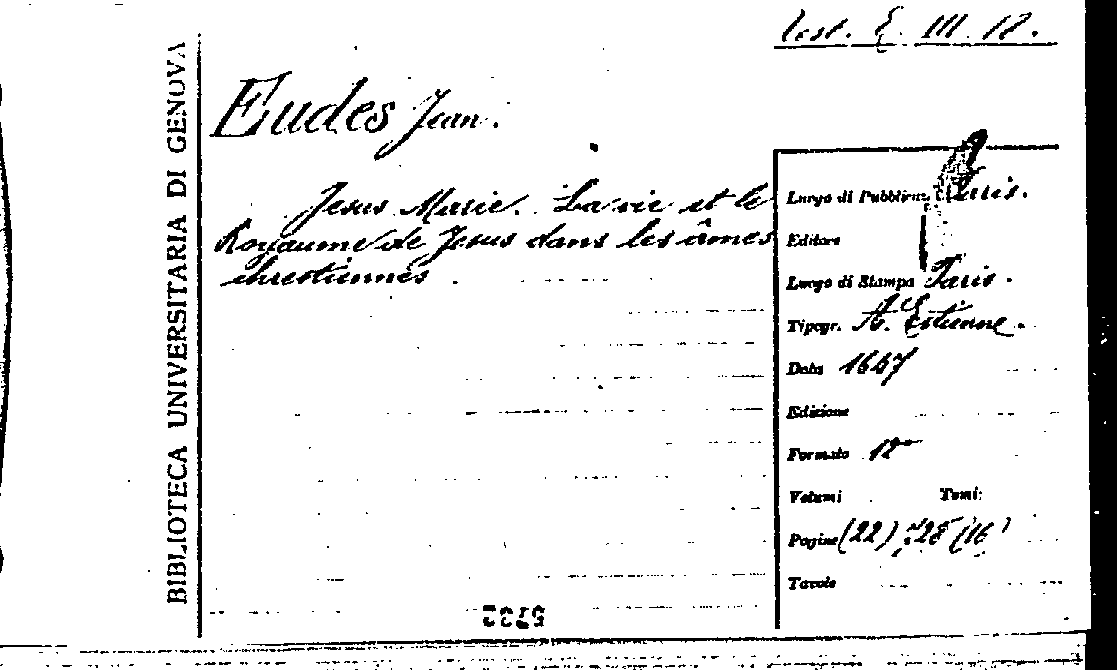 BIBLIOTECA UNIVERSITARIA DI GENOVA
E. III. 12.
Eudes Jean.
Jesus Marie. La vie et le
Royaume de Jesus dans les âmes
chrestiennes
Luogo di Pubblicaz. Paris.
Editore
Luogo di Stampa Paris.
Tipogr. A. Estienne.
Data 1667
Edizione
Formato 12°
Volumi Tomi:
Pagine (22) (16)
Tavole